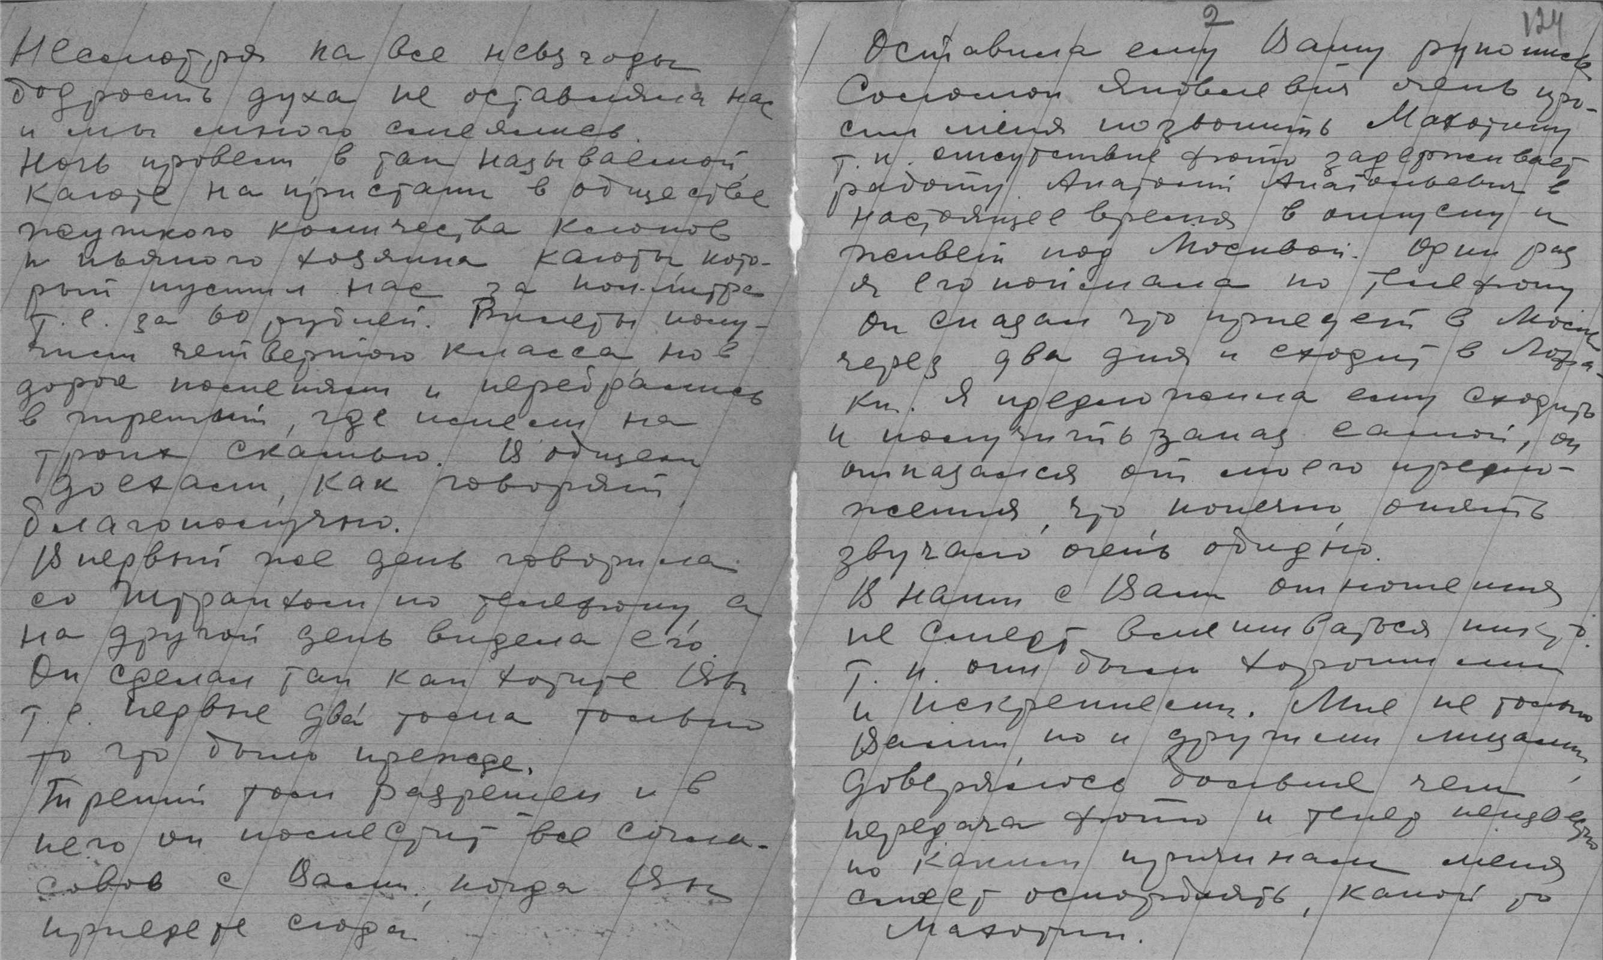 Несмотря на все невзгоды
бодрость духа не оставляла нас
и мы много смеялись.
Ночь провели в так называемой
каюте на пристани в обществе
жуткого количества клопов
и пьяного хозяина каюты кото-
рый пустил нас за поллитра
т.е. за 60 рублей. Билеты полу-
чили четвертого класса но в
дороге и перебрались
в третий, где имели на
троих скамью. В общем
доехали, как говорят,
благополучно.
В первый же день говорила
со Штраухом по телефону, а
на другой день видела его.
Он сделал так как хотите Вы
т.е. первые два тома только
то что было прежде.
Третий том разрешен и в
него он поместит все согла-
совав с Вами, когда Вы
приедете сюда
2
124
Оставила ему Вашу рукопись
Соломон Яковлевич очень про-
сил меня позвонить Махотину
т.к. отсутствие фото задерживает
работу Анатолий Анатольевич в
настоящее время в отпуску и
живет под Москвой. Один раз
я его поймала по телефону
Он сказал что приедет в Москву
через два дня и сходит в
Я предложила ему сходить
и получить заказ самой, он
отказался от моего предло-
жения, что, конечно, опять
звучало очень обидно.
В наши с Вами отношения
не смеет вмешиваться никто.
т.к. они были хорошими
и искренними. Мне не только
Вами, но и другими лицами,
доверялось больше чем
передача фото и теперь неизвестно
по каким причинам меня
смеет оскорблять, какой то
Махотин.